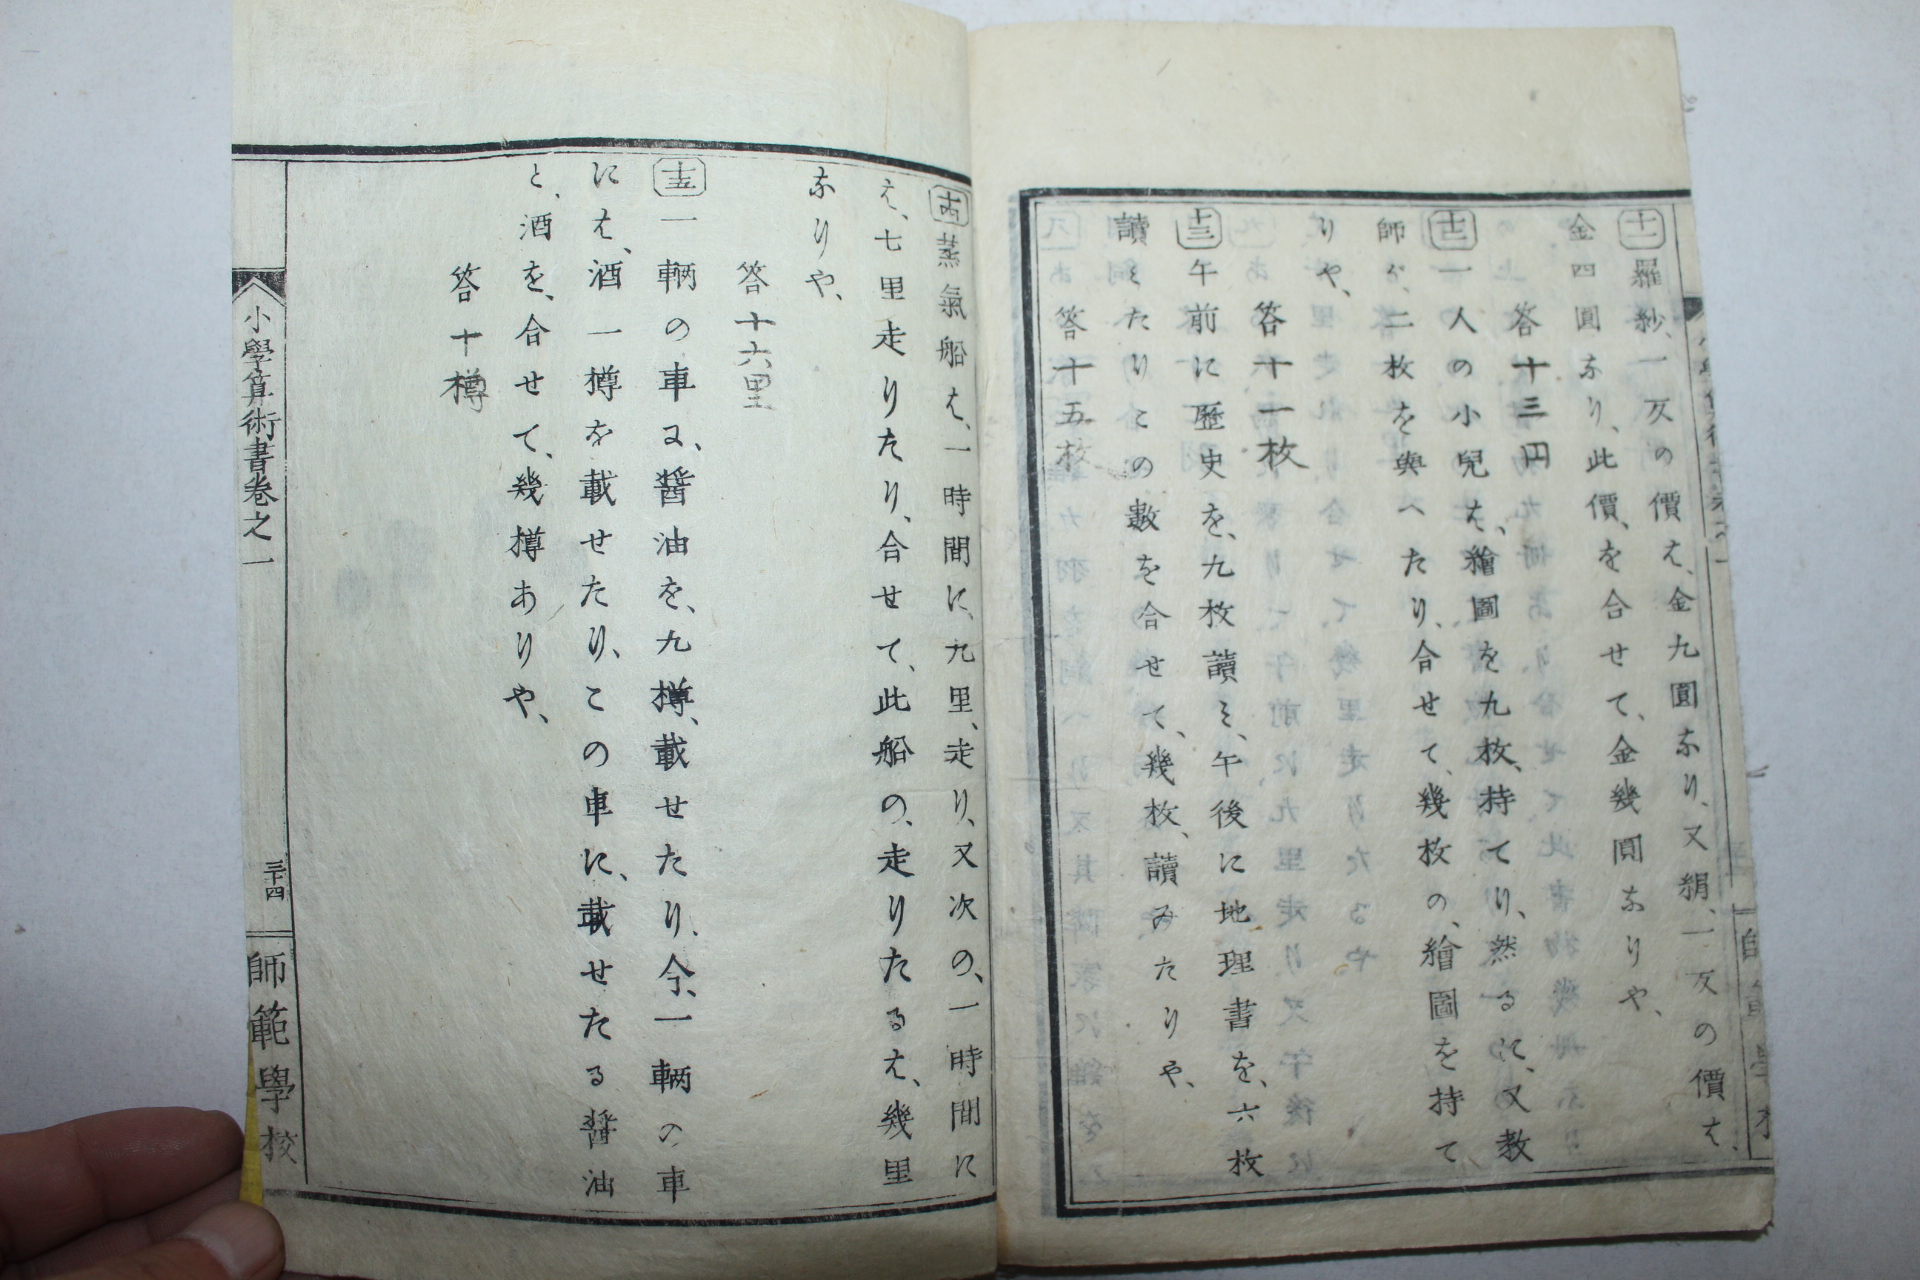 十一 羅紗、一反の價は、金九圓なり、又絹、一反の價は、
金四圓なり、此價、を合せて、金幾圓なりや、
答十三円
十二 一人の小兒は、繪圖を九枚、持てり、然るに、又教
師が、二枚を與へたり、合せて、幾枚の、繪圖を持て
りや、
答十一枚
十三 午前に歴史を、九枚讀み、午後に地理書を、六枚
讀みたりとの數を合せて、幾枚、讀みたりや、
答十五枚
十四 蒸氣船は、一時間に、九里、走り、又次の、一時間に
は、七里走りたり、合せて、此船の、走りたるは、幾里
なりや、
答十六里
十五 一輌の車に、醤油を、九樽、載せたり、今、一輌の車
には、酒一樽を載せたり、この車に、載せたる醤油
と、酒を、合せて、幾樽ありや、
答十樽
小學算術書卷之一
三十四
師範學校